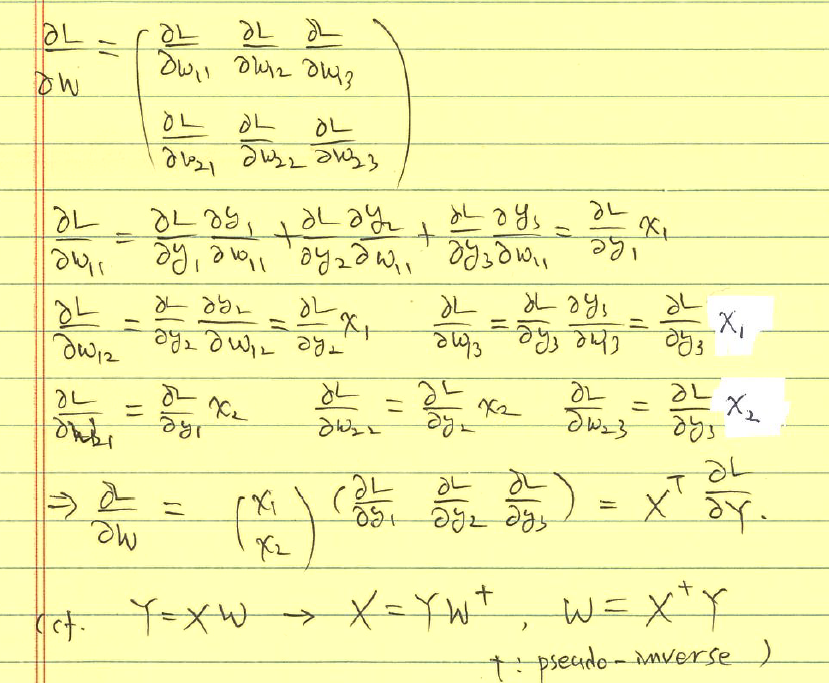 ∂L/∂W = ( ∂L/∂w₁₁ ∂L/∂w₁₂ ∂L/∂w₁₃
∂L/∂w₂₁ ∂L/∂w₂₂ ∂L/∂w₂₃ )
∂L/∂w₁₁ = ∂L/∂y₁ ∂y₁/∂w₁₁ + ∂L/∂y₂ ∂y₂/∂w₁₁ + ∂L/∂y₃ ∂y₃/∂w₁₁ = ∂L/∂y₁ x₁
∂L/∂w₁₂ = ∂L/∂y₂ ∂y₂/∂w₁₂ = ∂L/∂y₂ x₁ ∂L/∂w₁₃ = ∂L/∂y₃ ∂y₃/∂w₁₃ = ∂L/∂y₃ x₁
∂L/∂w₂₁ = ∂L/∂y₁ x₂ ∂L/∂w₂₂ = ∂L/∂y₂ x₂ ∂L/∂w₂₃ = ∂L/∂y₃ x₂
⇒ ∂L/∂W = (x₁ x₂) (∂L/∂y₁ ∂L/∂y₂ ∂L/∂y₃) = Xᵀ ∂L/∂Y.
(cf. Y = XW → X = YW⁺, W = X⁺Y
+ : pseudo-inverse )